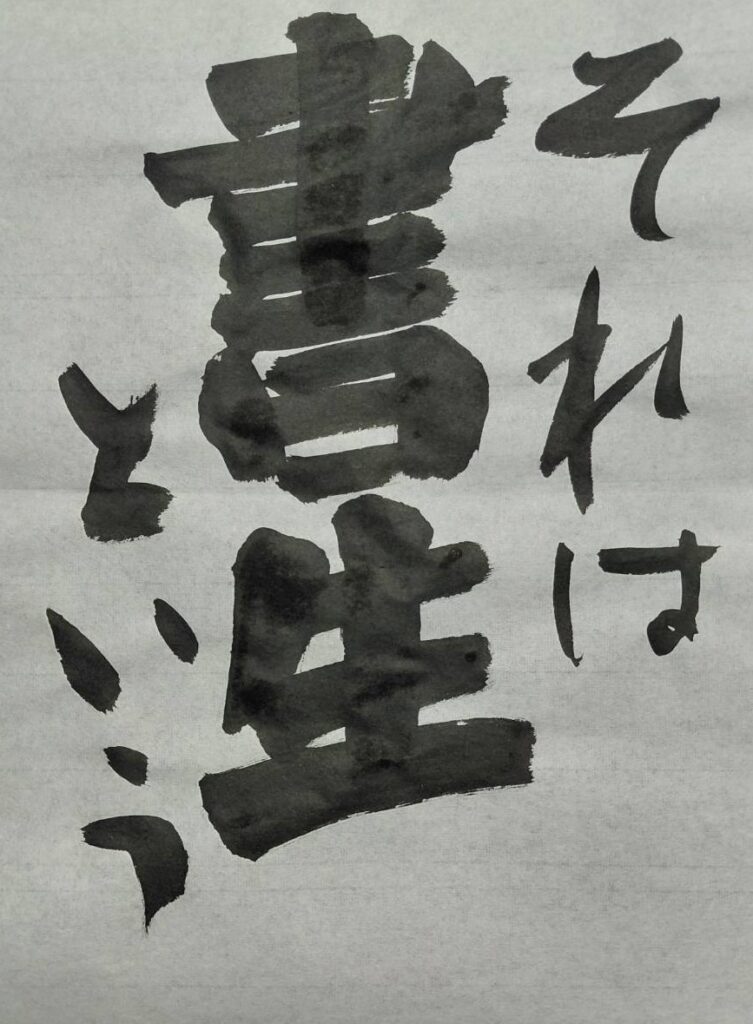 それは
書生
という